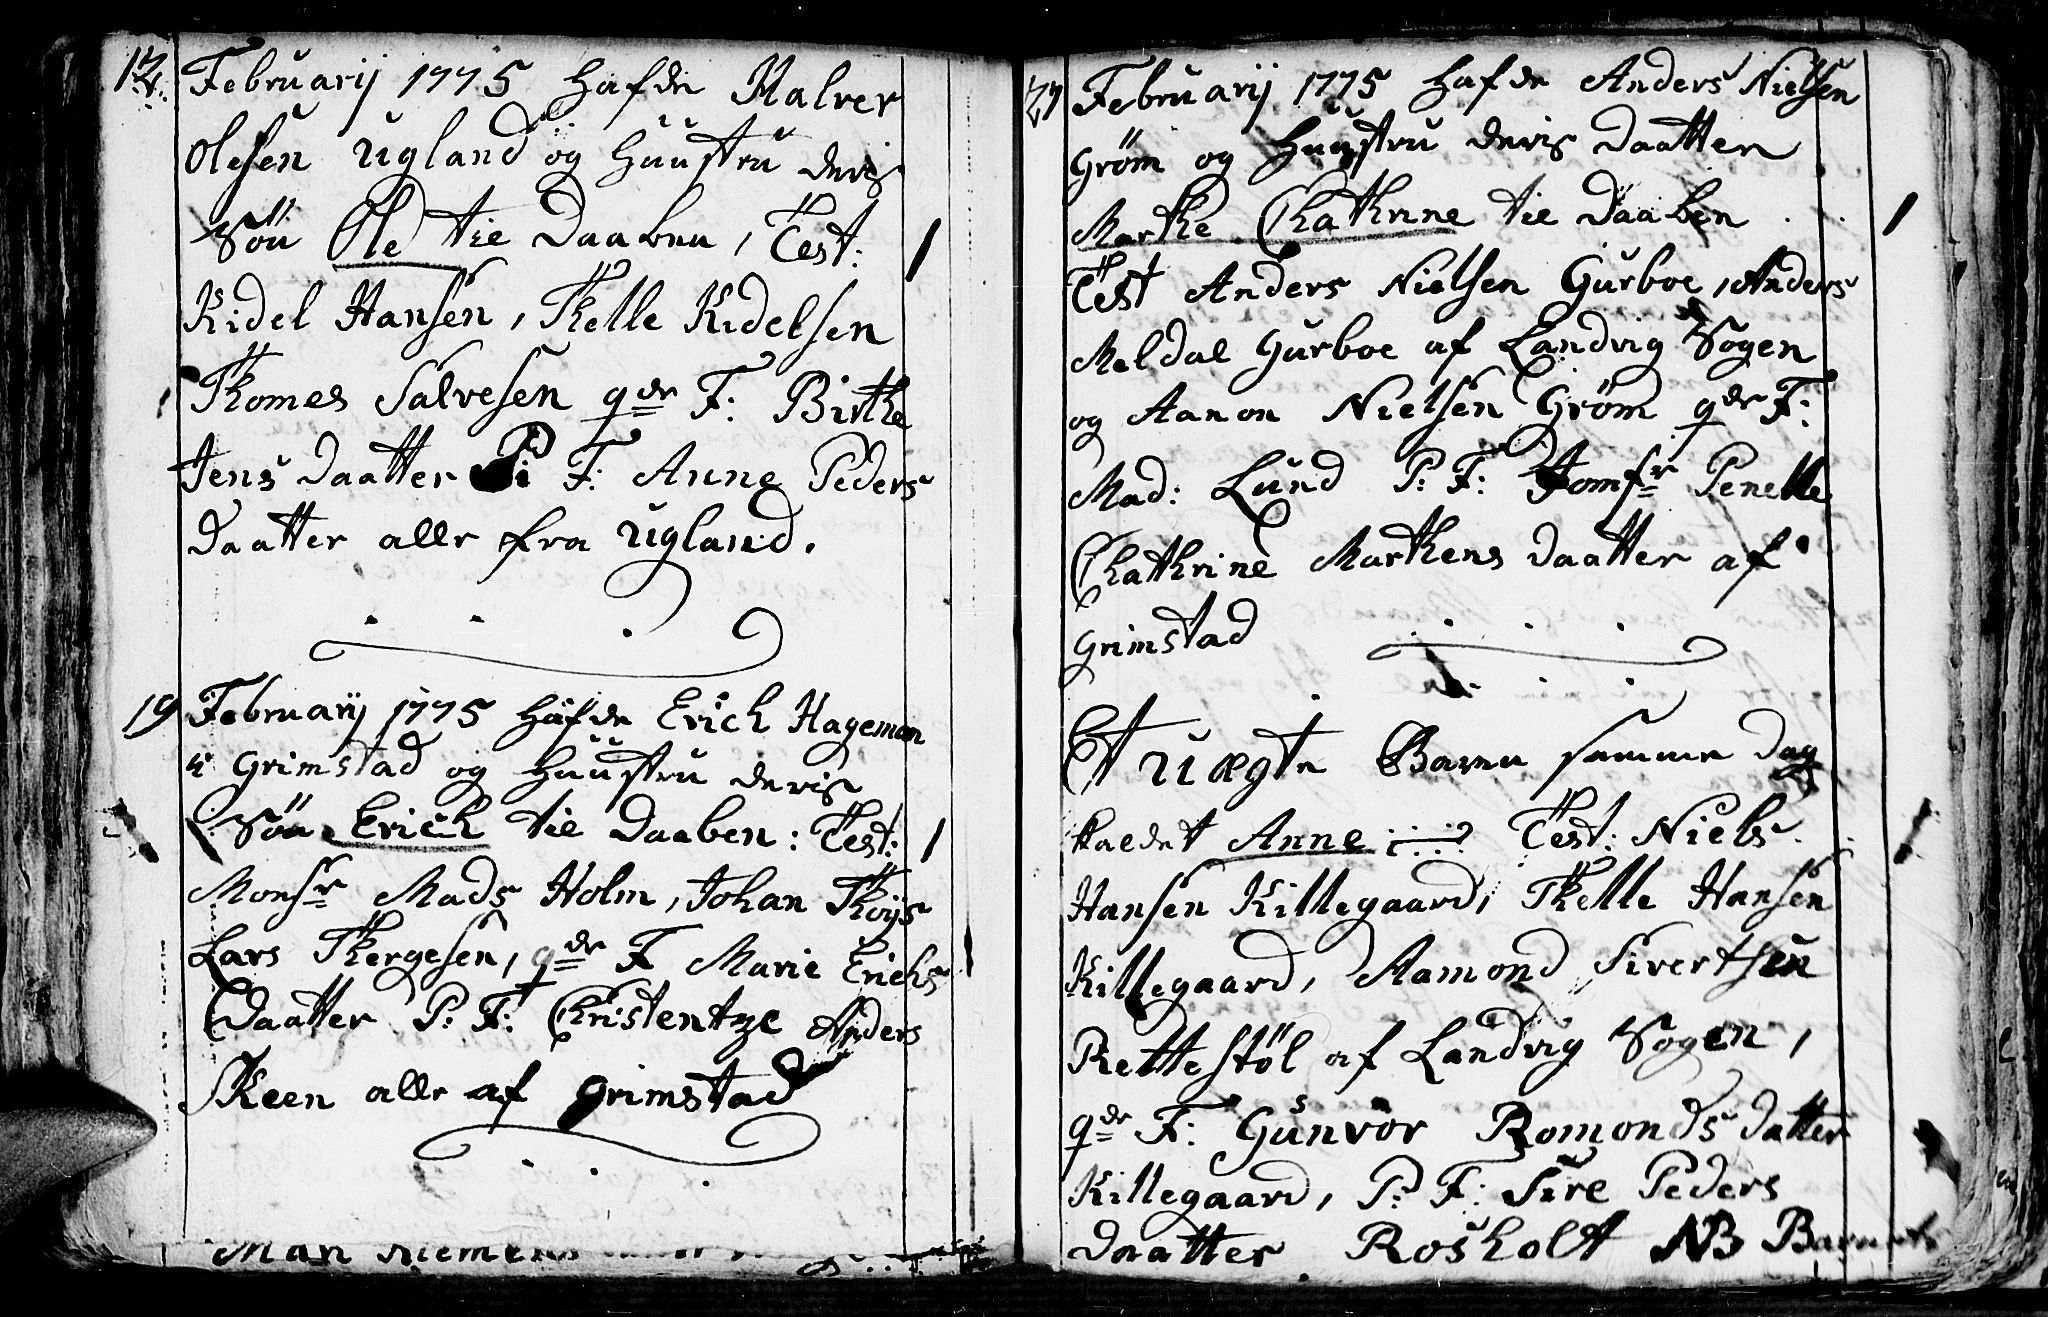 12. Februarij 1775 hafde Halver
Olesen Ugland og Huustru deris
Søn Ole til Daaben, Test:
Kidel Hansen, Thelle Kidelsen
Thomes Salvesen gde F: Birthe
Jens Daatter Pi F: Anne Peders
Daatter alle fra Ugland.
19 Februarij 1775 hafde Erich Hageman
i Grimstad og Huustru deris
Søn Erich til Daaben: Test:
Monsr Mads Holm, Johan Thoÿs
Lars Thergesen, gde F Marie Erichs
Daatter P: F: Christentze Anders
Skeen alle af Grimstad
Man Klemens
27 Februarij 1775 hafde Anders Nielsen
Grøm og Huustru deris Daatter
Marthe Chathrine til Daaben
Test Anders Nielsen Gurboe, Anders
Meldal Gurboe af Landvig Sogen
og Aanon Nielsen Grøm gde F:
Mad: Lund P: F: Jomfr Penelle
Chathrine Marthens Daatter af
Grimstad
Et Uægte Barn samme Dag
kaldet Anne Test: Niels
Hansen Killegaard, Thelle Hansen
Killegaard, Aamond Sivertsen
Rettestøl af Landvig Sogen,
gde F: Gunvor Romonds datter
Killegaard, P: F: Sire Peders
Daatter Rosholt NB Barnets